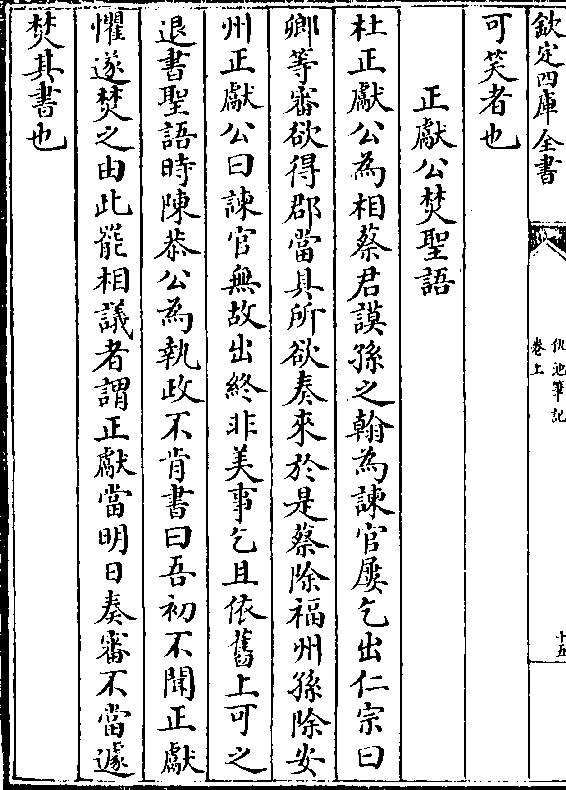 欽定四庫全書
仇池筆記
卷上
十五
可笑者也
正獻公焚聖語
杜正獻公為相蔡君謨孫之翰為諫官屢乞出仁宗曰
卿等審欲得郡當具所欲奏來於是蔡除福州孫除安
州正獻公曰諫官無故出終非美事乞且依舊上可之
退書聖語時陳恭公為執政不肯書曰吾初不聞正獻
懼遂焚之由此罷相議者謂正獻當明日奏審不當遽
焚其書也